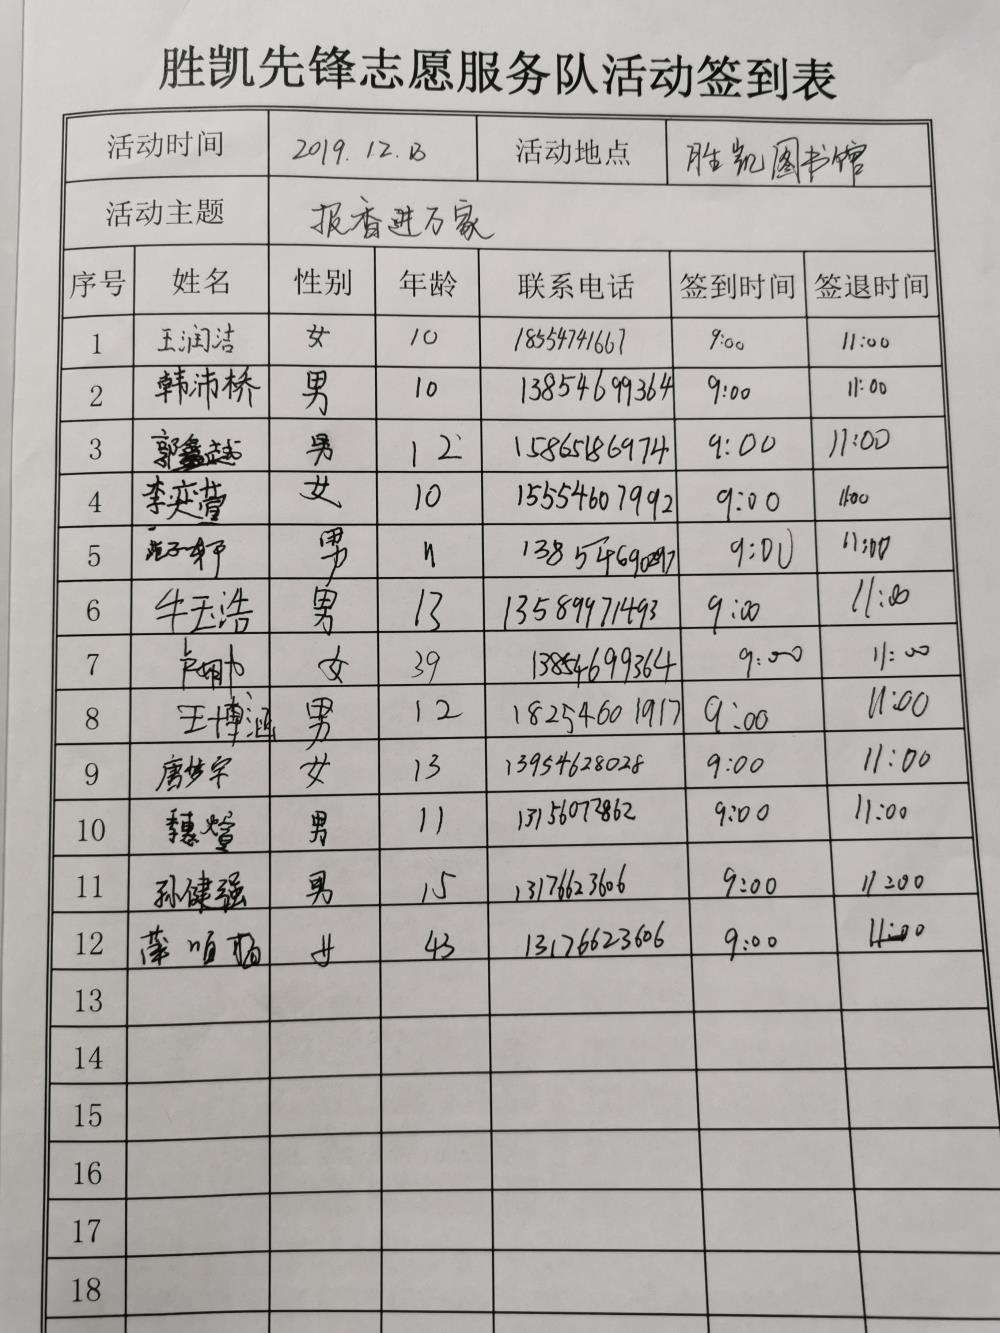 胜凯先锋志愿服务队活动签到表
活动时间 2019.12.13 活动地点 胜凯图书馆
活动主题 报香进万家
序号 姓名 性别 年龄 联系电话 签到时间 签退时间
1 王润洁 女 10 18554741667 9:00 11:00
2 韩沛桥 男 10 13854699364 9:00 11:00
3 郭鑫越 男 12 15865186974 9:00 11:00
4 李奕萱 女 10 15554607992 9:00 11:00
5 男 11 9:00 11:00
6 牛玉浩 男 13 13589971493 9:00 11:00
7 女 39 13854699364 9:00 11:00
8 王博涵 男 12 18254601917 9:00 11:00
9 唐梦宇 女 13 13954628028 9:00 11:00
10 男 11 13156077862 9:00 11:00
11 孙健强 男 15 13176623606 9:00 11:00
12 女 43 13176623606 9:00 11:00
13
14
15
16
17
18